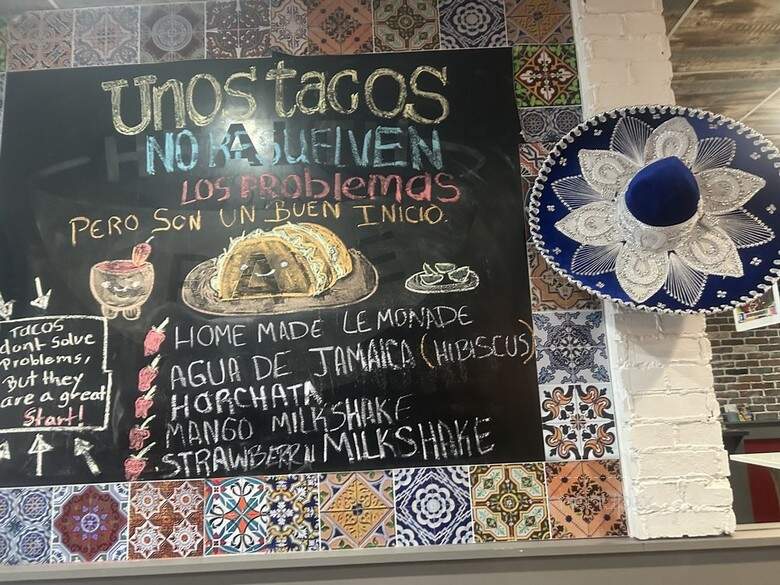 UNOS tacos
NO RASUELVEN
LOS PRoblemas
PERO SON UN BUEN INICIO.
HOME MADE LEMONADE
AGUA DE JAMAICA (HIBISCUS)
HORCHATA
MANGO MILKSHAKE
STRAWBERRY MILKSHAKE
TACOS
dont Solve
Problems,
But they
are a great
Start!